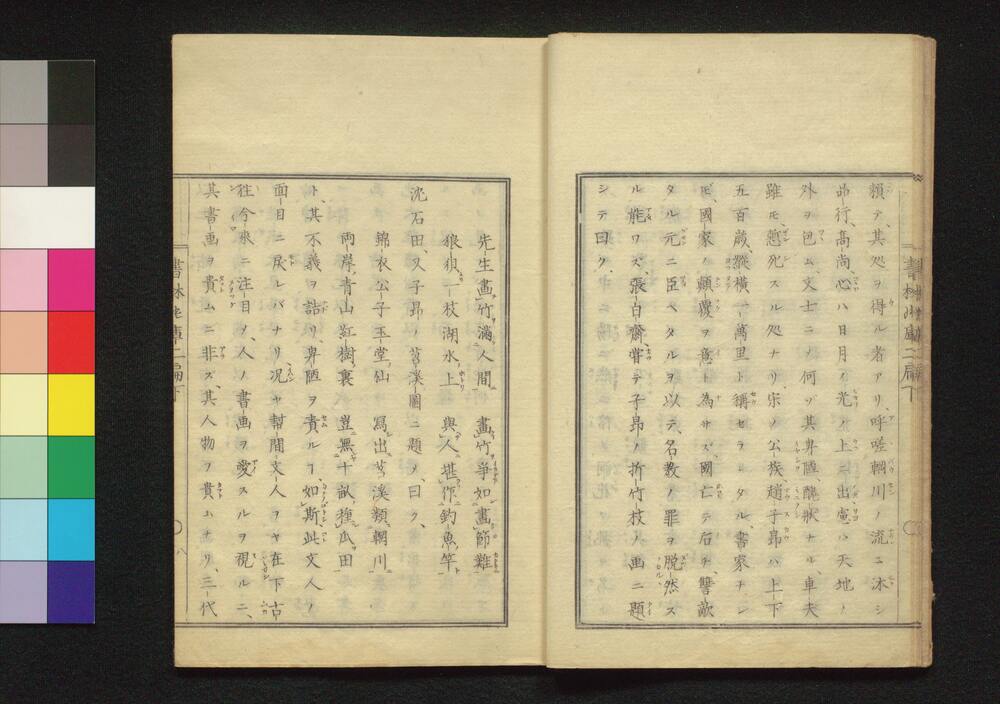 頼テ、其処ヲ得ル者アリ、呼嗟輞川ノ流ニ沐シ
品行、高尚、心ハ日月ノ光ノ上ニ出
外ヲ巴ム、文士ニノ何ゾ其卑陋、醜状ナル、車夫
雖モ慙死スル処ナリ、宋ノ公族、趙子昂ハ上下
五百歳、縦横一萬里ト稱セラルタル、書家ナレ
モ、國家ノ顛覆ヲ意ト為サズ、國亡テ后チ、讐敵
タル元ニ臣ヘタルヲ以テ、名教ノ罪ヲ脱然ス
ル能ワズ、張白齋嘗テ子昂ノ折竹枝ノ画ニ題
シテ曰ク、
書林
二扁下
先生畫竹滿人間 畫竹爭如畫節難
狼狽一枝湖水上 與人堪作釣魚竿
沈石田、又子昂ノ苕溪圖ニ題ノ、曰ク、
錦衣公子玉堂仙 寫出苕溪類輞川
兩岸青山紅樹裏 豈無十畝種瓜田
ト、其不義ヲ詰リ、卑陋ヲ責ルヿ、如斯、此文人ノ
面目ニ戻レバナリ、況ヤ幇間文人ヲヤ、在下古
徃今來ニ注目ヲ、人ノ書画ヲ愛スルヲ視ルニ、
其書画ヲ貴ムニ非ズ、其人物ヲ貴ムナリ、三代
書林
二扁下
八